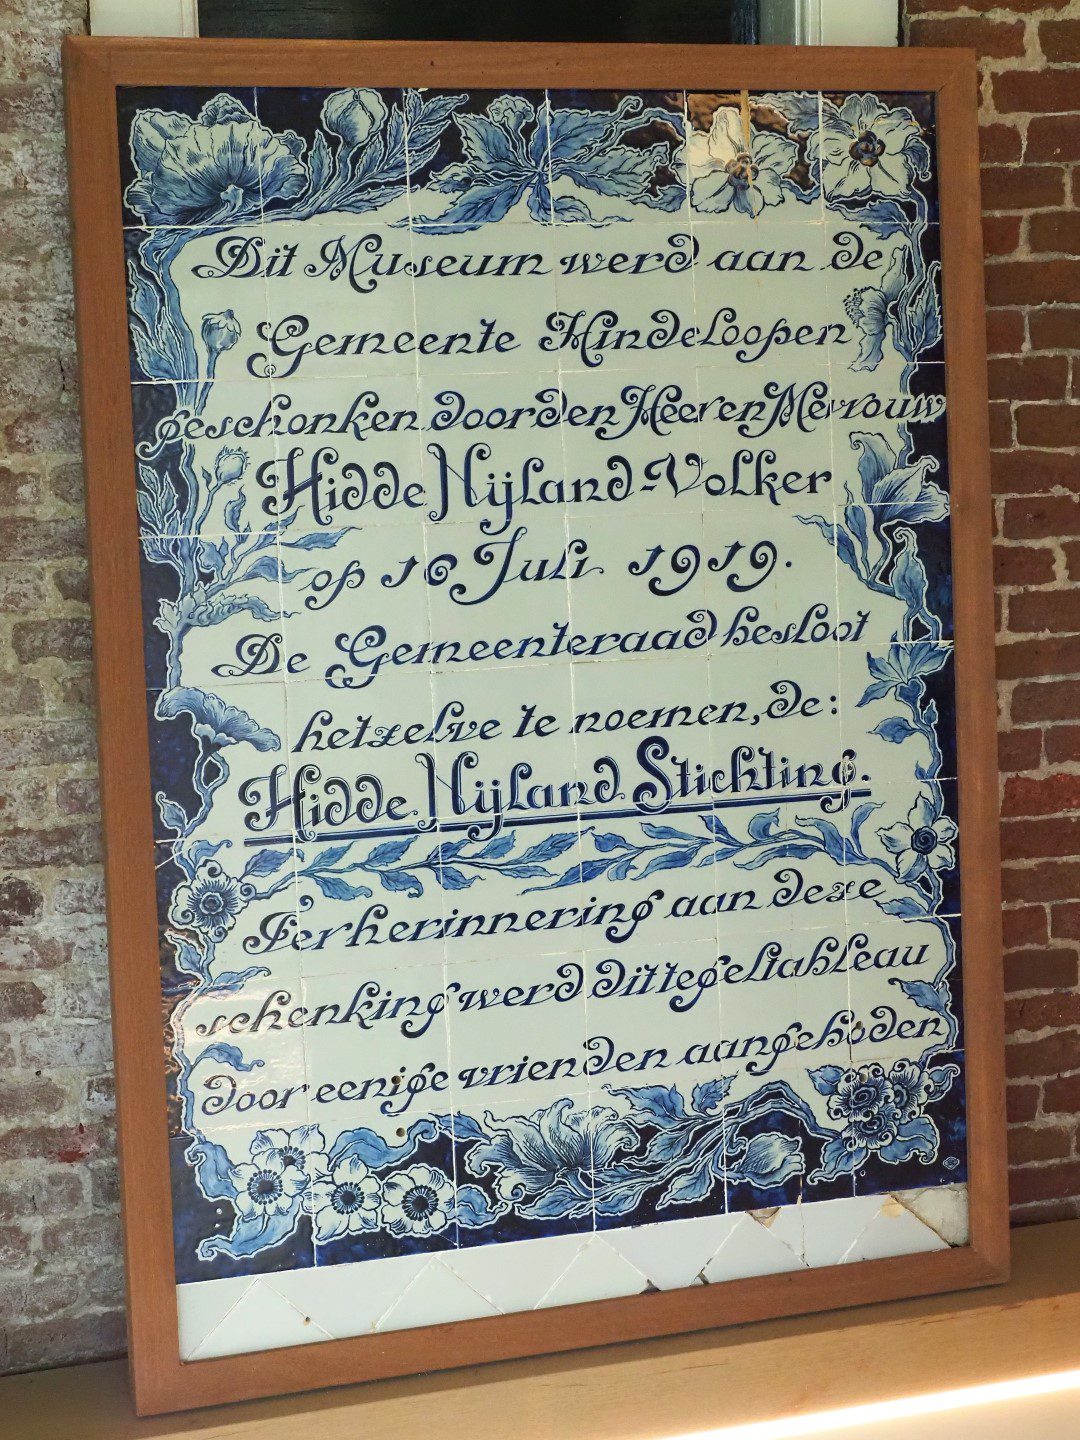 Dit Museum werd aan de
Gemeente Hindeloopen
geschonken door den Heer en Mevrouw
Hidde Nijland-Volker
op 16 Juli 1919.
De Gemeenteraad besloot
hetzelve te noemen, de:
Hidde Nijland Stichting.
Ter herinnering aan deze
schenking werd dit tegeltableau
door eenige vrienden aangeboden